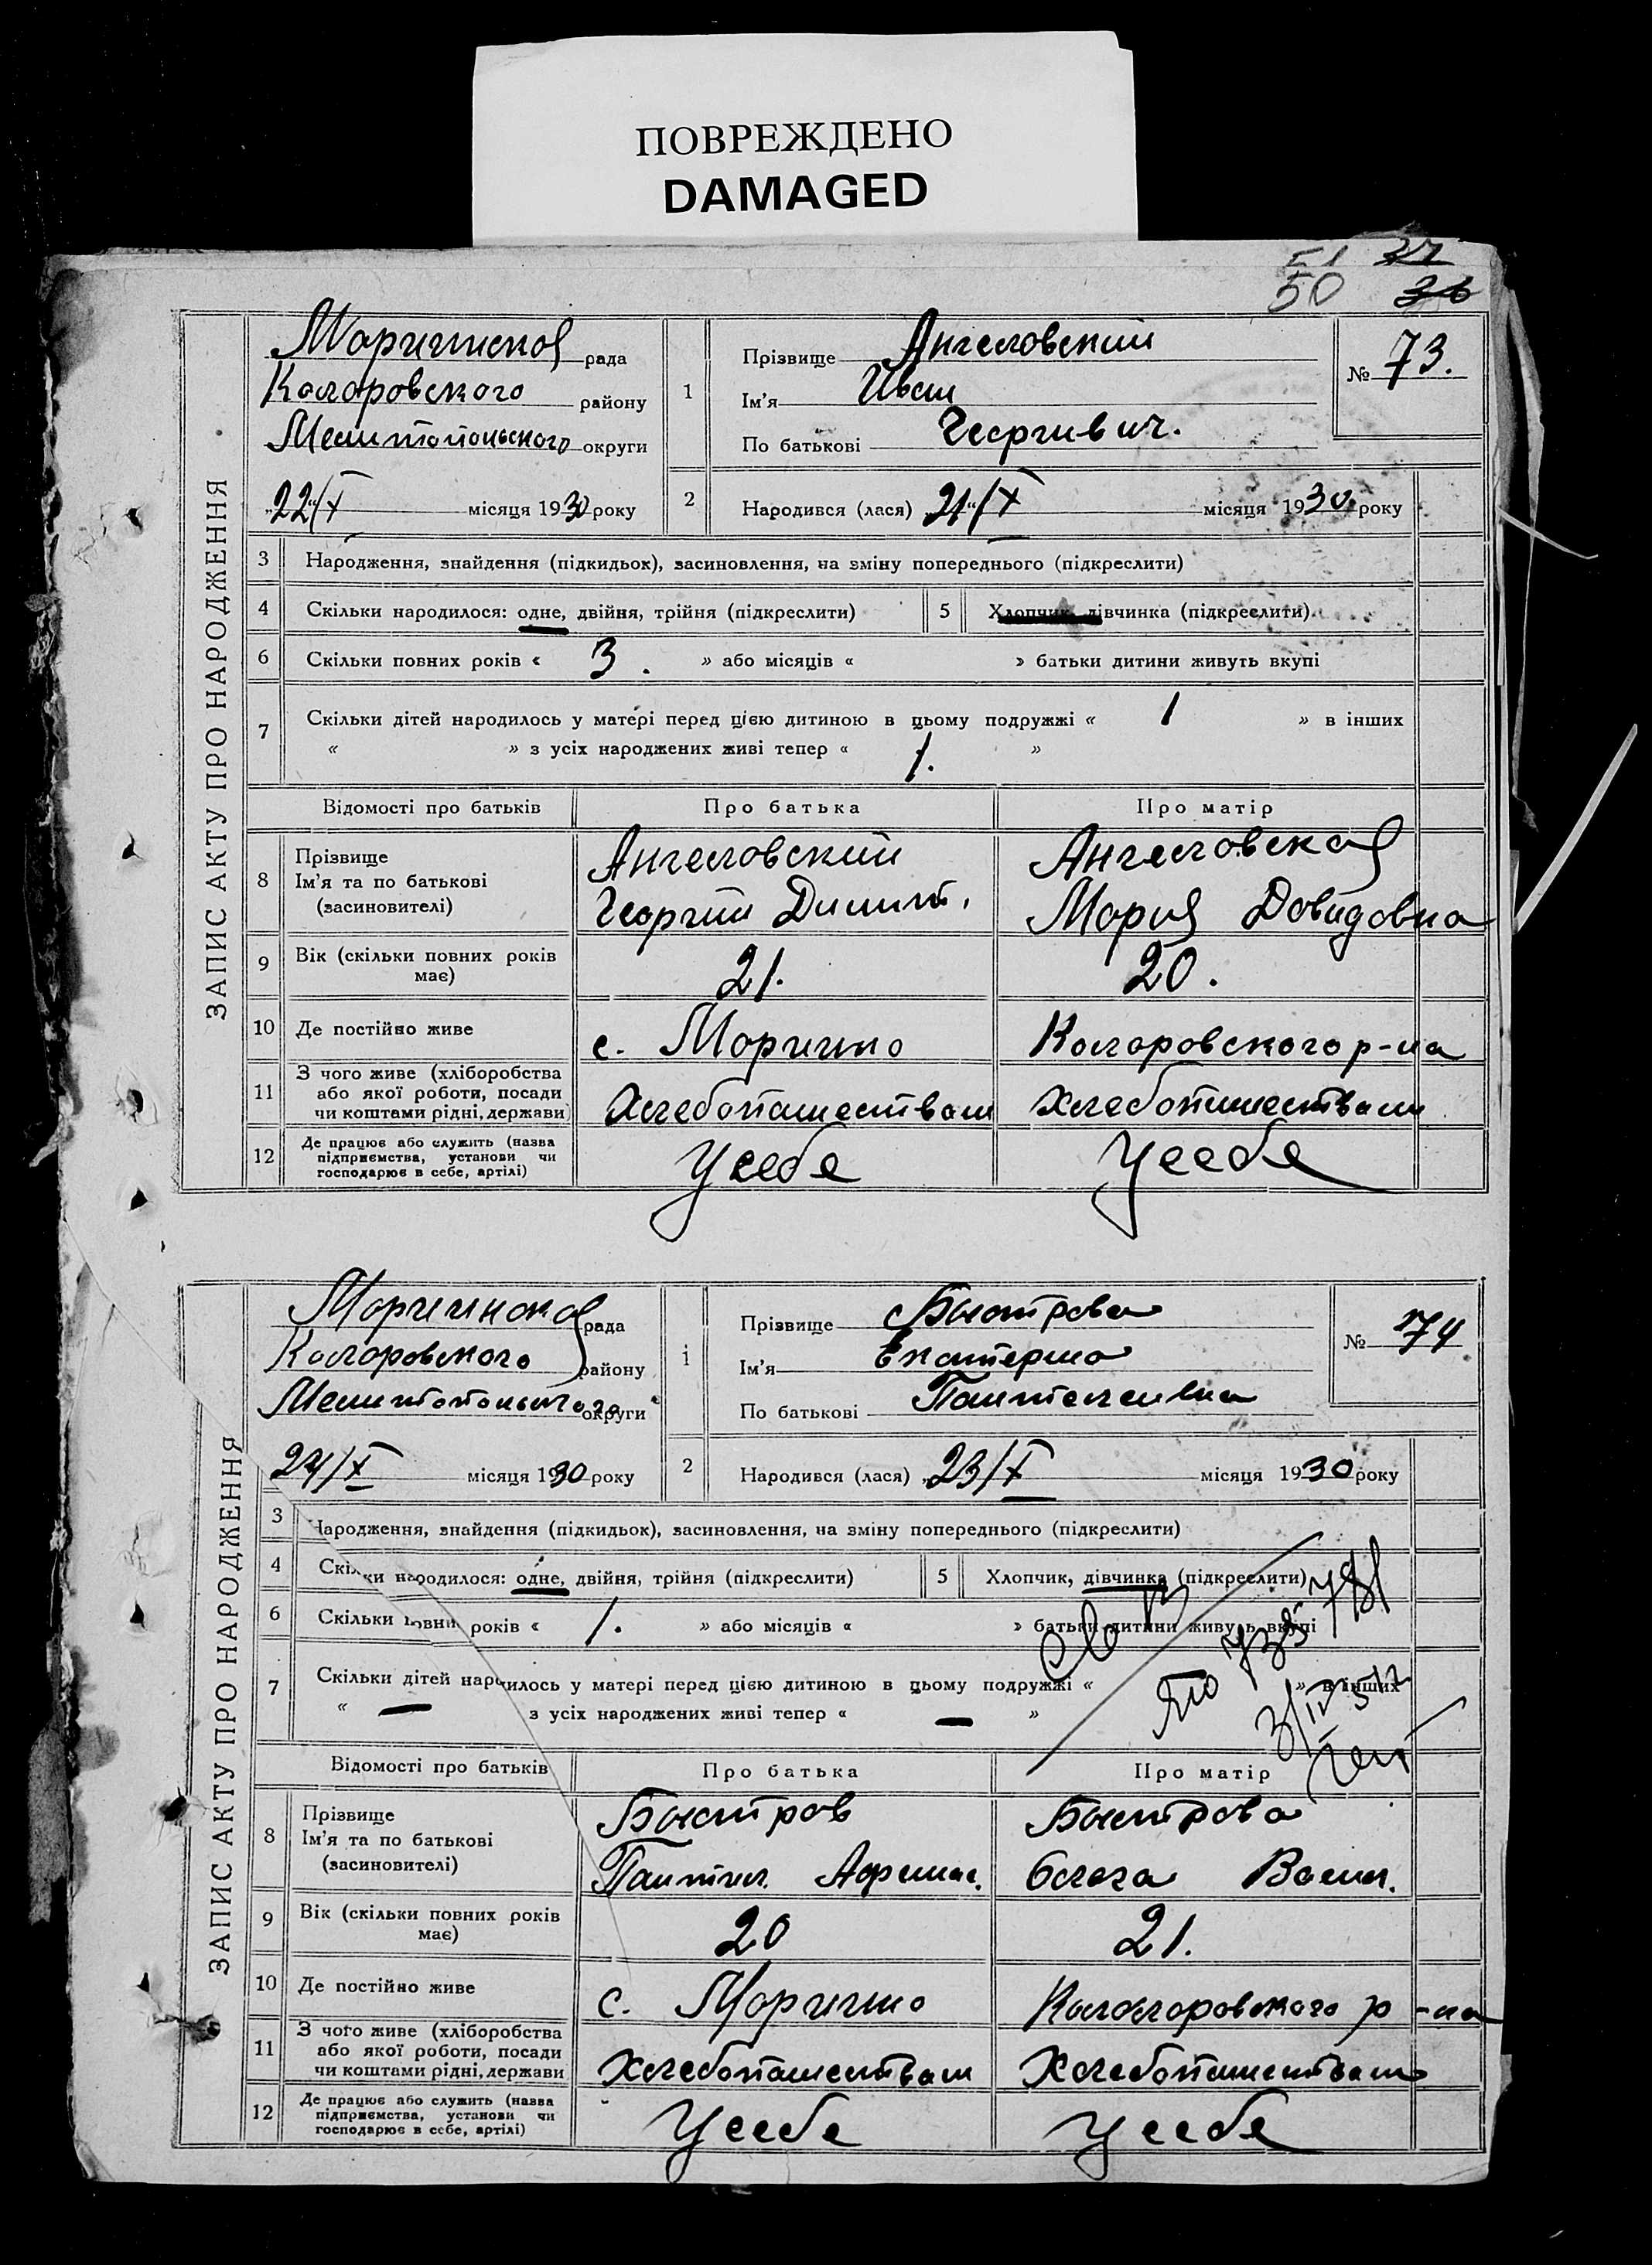 ПОВРЕЖДЕНО
DAMAGED
51 37
50 36
ЗАПИС АКТУ ПРО НАРОДЖЕННЯ
рада
Коларовского району
Мелитопольского округи
„22“/X місяця 1930 року
1 Прізвище Ангеловский
Ім'я Иван
По батькові Георгиевич.
№ 73.
2 Народився (лася) „21“/X місяця 1930. року
3 Народження, знайдення (підкидьок), засиновлення, на зміну попереднього (підкреслити)
4 Скільки народилося: одне, двійня, трійня (підкреслити) 5 Хлопчик, дівчинка (підкреслити)
6 Скільки повних років « 3. » або місяців « » батьки дитини живуть вкупі
7 Скільки дітей народилось у матері перед цією дитиною в цьому подружжі « 1 » в інших
« » з усіх народжених живі тепер « 1. »
Відомості про батьків Про батька Про матір
8 Прізвище Ім'я та по батькові (засиновителі)
Ангеловский Ангеловская
Георгий Димит. Мария Давидовна
9 Вік (скільки повних років має) 21. 20.
10 Де постійно живе с. Коларовского р-на
11 З чого живе (хліборобства або якої роботи, посади чи коштами рідні, держави) Хлебопашеством Хлебопашеством
12 Де працює або служить (назва підприємства, установи чи господарює в себе, артілі) У себе У себе
ЗАПИС АКТУ ПРО НАРОДЖЕННЯ
рада
Коларовского району
Мелитопольского округи
24/X місяця 1930 року
1 Прізвище Быстрова
Ім'я Екатерина
По батькові
№ 74
2 Народився (лася) „23/X місяця 1930 року
3 Народження, знайдення (підкидьок), засиновлення, на зміну попереднього (підкреслити)
4 Скільки народилося: одне, двійня, трійня (підкреслити) 5 Хлопчик, дівчинка (підкреслити)
6 Скільки повних років « 1. » або місяців « » батьки дитини живуть вкупі
7 Скільки дітей народилось у матері перед цією дитиною в цьому подружжі « » в інших
« — з усіх народжених живі тепер « — »
Відомості про батьків Про батька Про матір
8 Прізвище Ім'я та по батькові (засиновителі)
Быстров Быстрова
Васил.
9 Вік (скільки повних років має) 20 21.
10 Де постійно живе с. р-на
11 З чого живе (хліборобства або якої роботи, посади чи коштами рідні, держави Хлебопашеством Хлебопашеством
12 Де працює або служить (назва підприємства, установи чи господарює в себе, артілі) У себе У себе